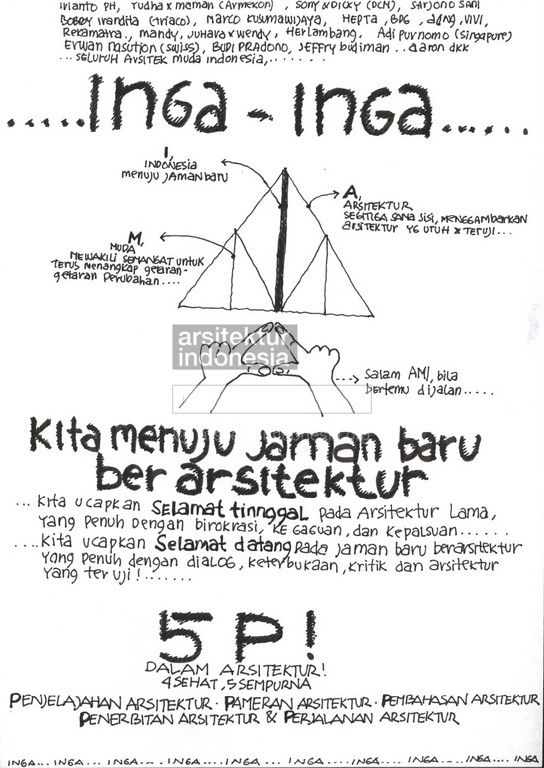 Irianto PH, Yudha & maman (Armekon) , SONY & DICKY (DCM), SARJONO SANI
BOBBY Irandita (Triaco), MARCO KUSUMAWIJAYA, HEPTA, BDG, adeng, VIVI,
Rekamatra., mandy, JUHARA & wendy, Herlambang, Adi Purnomo (Singapure)
Erwan nasution (swiss), BUDI PRADONO, JEFFRY budiman .. aaron dkk
... SELURUH ARSITEK muda indonesia,.......
.....INGA - INGA......
I,
INDONESIA
menuju jaman baru
A,
ARSITEKTUR
SEGITIGA SAMA SISI, MENGGAMBARKAN
ARSITEKTUR YG UTUH & TERUJI...
M,
MUDA
MEWAKILI SEMANGAT UNTUK
TERUS MENANGKAP GETARAN-
GETARAN PERUBAHAN....
arsitektur
indonesia
Salam AMI, bila
bertemu dijalan.....
Kita menuju jaman baru
ber arsitektur
... Kita ucapkan Selamat tinnggal pada Arsitektur Lama,
yang Penuh Dengan birokrasi, KEGAGUAN, dan Kepalsuan......
....Kita ucapkan Selamat datang pada jaman baru berarstektur
yang penuh dengan dialog, keterbukaan, kritik dan arsitektur
yang teruji!.......
5 P!
DALAM ARSITEKTUR!
4 SEHAT, 5 SEMPURNA
PENJELAJAHAN ARSITEKTUR · PAMERAN ARSITEKTUR · PEMBAHASAN ARSITEKTUR
PENERBITAN ARSITEKTUR & PERJALANAN ARSITEKTUR
INGA... INGA... INGA.... INGA..... INGA.... INGA.... INGA.... INGA.... INGA.... INGA